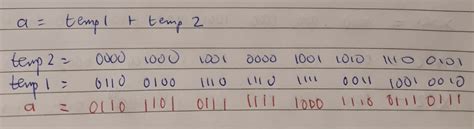 a = temp1 + temp 2
temp 2 = 0000 1000 1001 0000 1001 1010 1110 0101
temp 1 = 0110 0100 1110 1110 1111 0011 1001 0010
a = 0110 1101 0111 1111 1000 1110 0111 0111